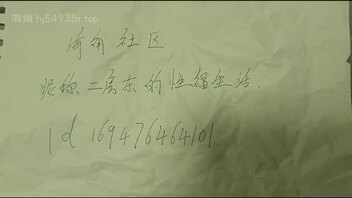 海角 hj54938f.top
海角社区
昵称二房东的性福生活.
id 169476464101.